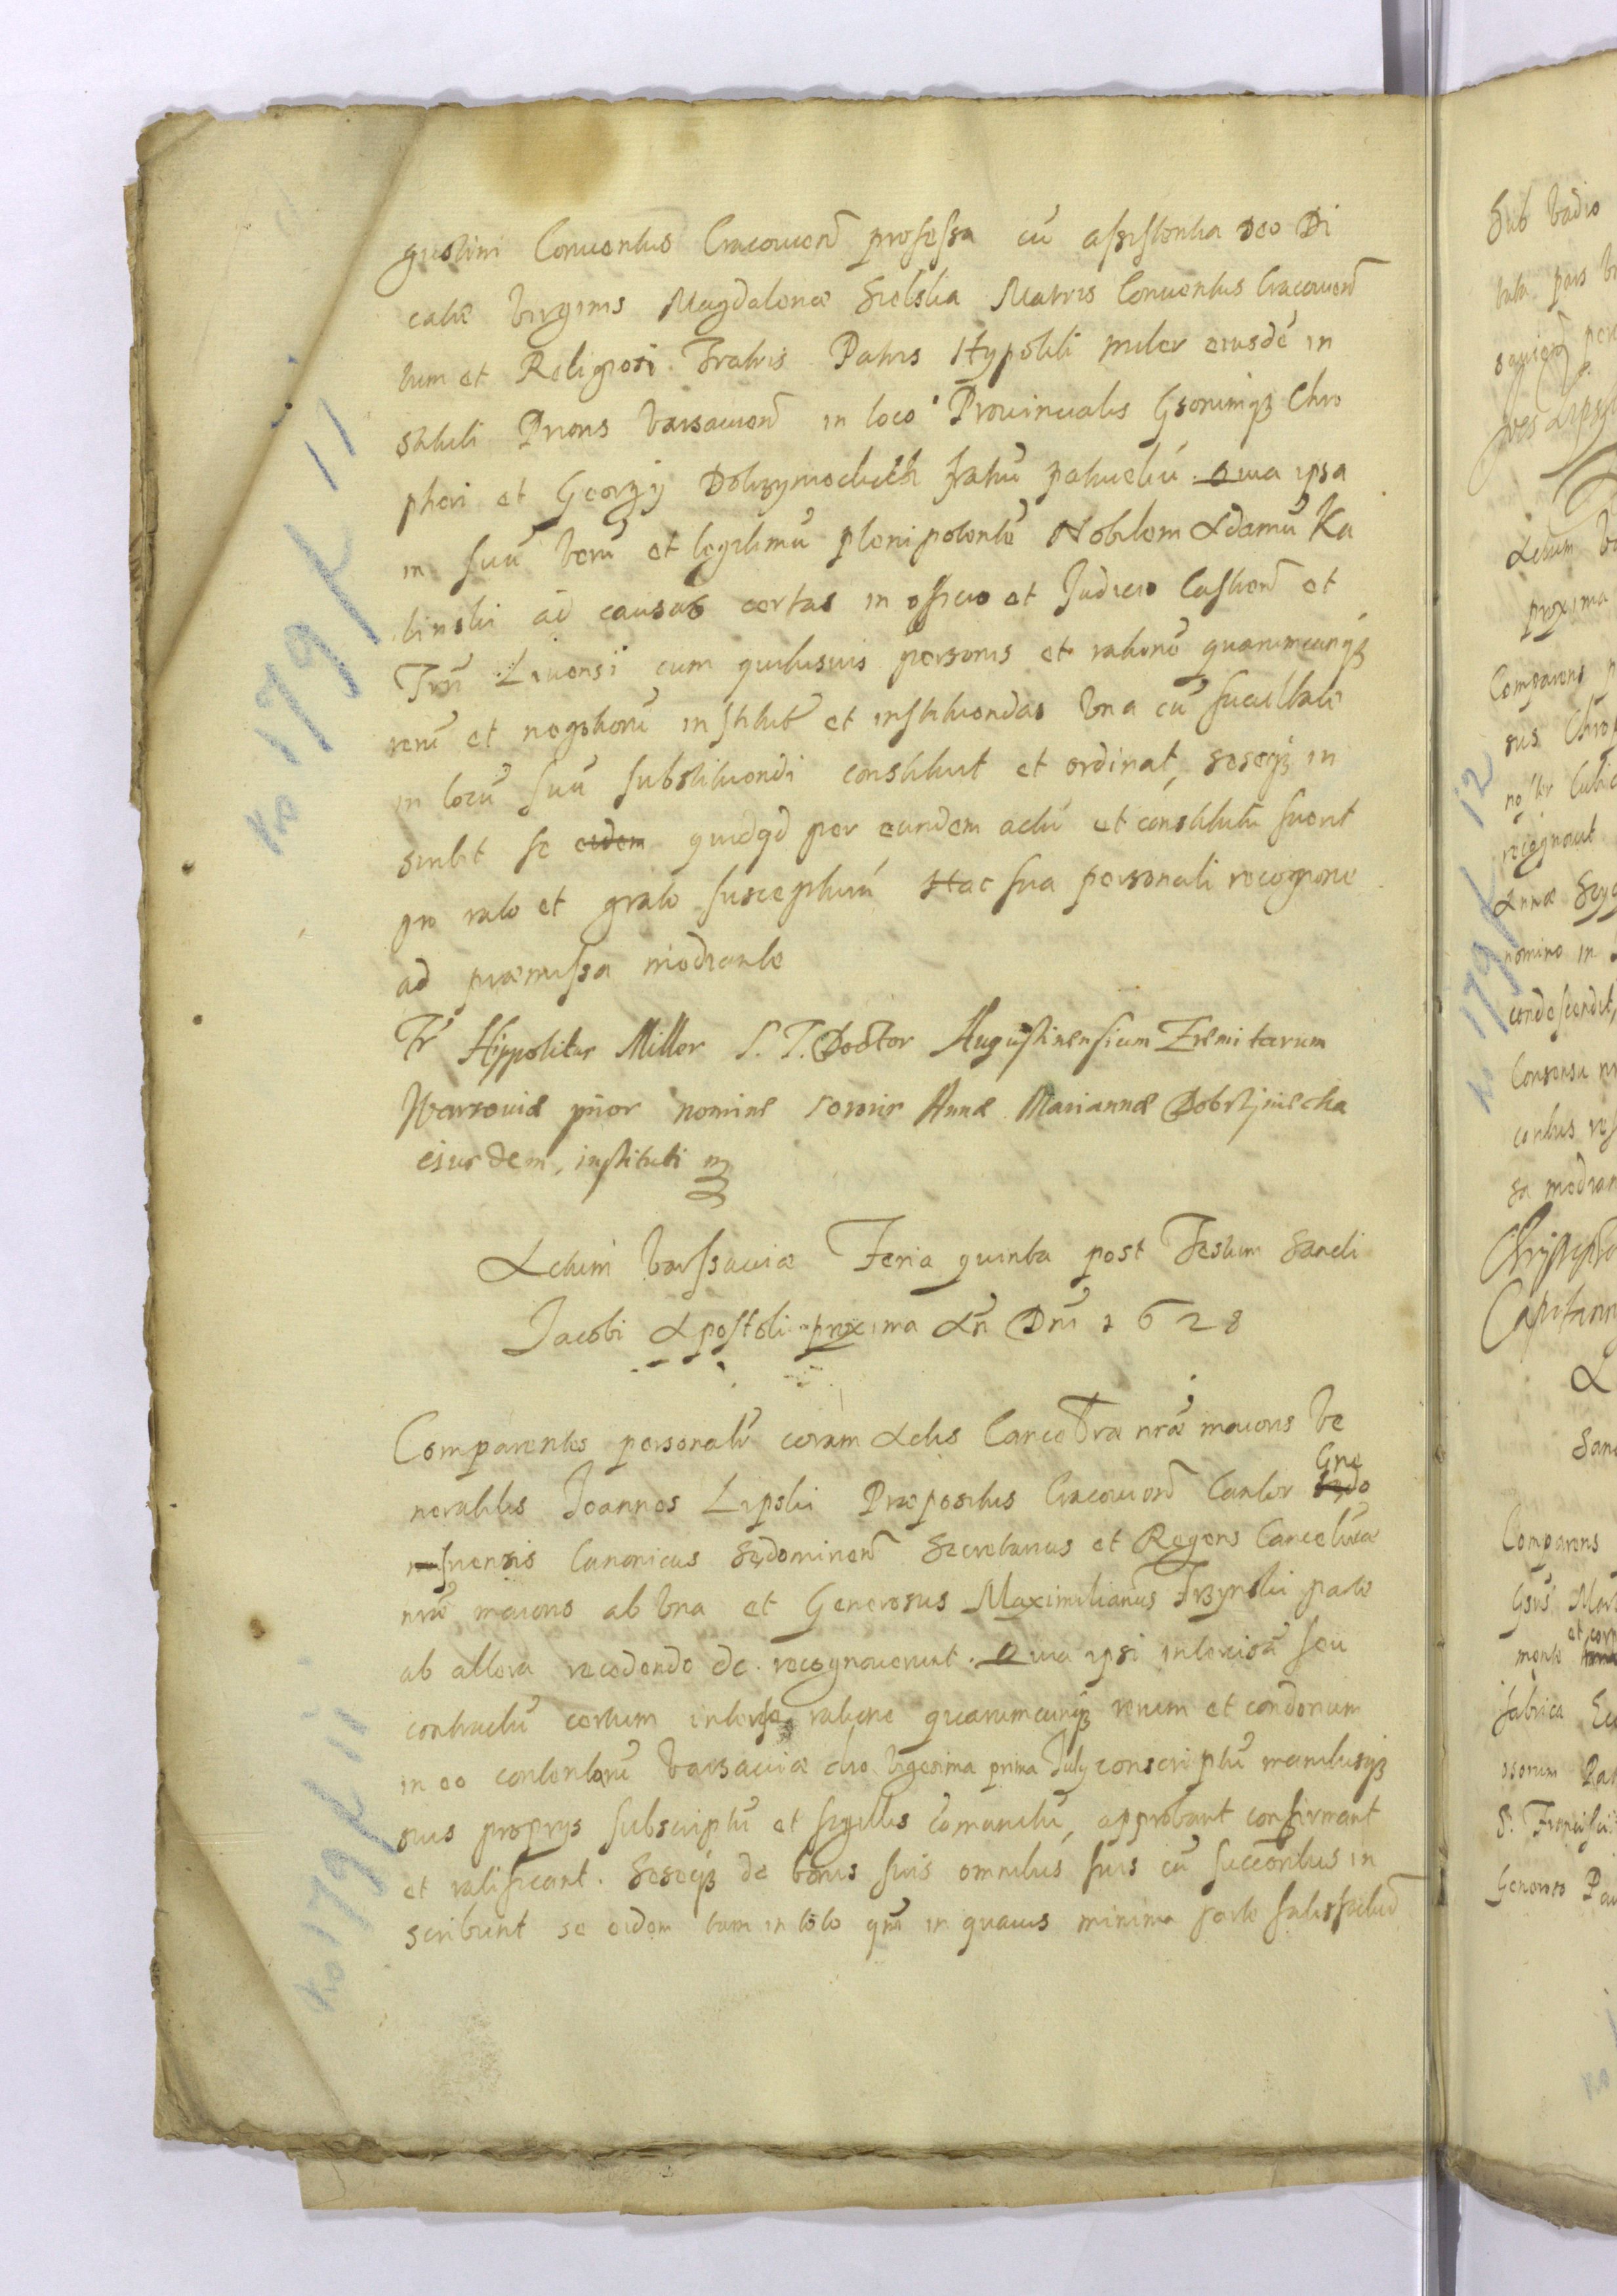 gustini Conventus Cracovien professa cū assistentia Deo Di
catæ virginis Magdalenæ Sielska Matris Conventus Cracovien
tum et Religiosi Fratris Patris Hypoliti miler eiusdē in
stituti Prioris Varsavien in loco Provincialis Gsorumqȝ Chro
phori et Georgij Dobrzymochich fratrū patruelium. Quia ipsa
in suū verū et legitimū plenipotentē Nobilem Adamū Ka
linski ad causas certas in officio et Judicio Castren et
Trri Livensi cum quibusvis personis et rationē quarumcunqȝ
rerū et negotiorū institut et instituendas una cū facultate
in locū suū substituendi constituit et ordinat, seseqȝ in
scribit se eidem quidqd per eundem actū et constitutū fuerit
pro rato et grato suscepturū Hac sua personali recognone
ad præmissa mediante
Fr Hippolitus Miller S. T. Doctor Augustinensium Eremitarum
Warsoviæ prior nomine sororis Annæ Mariannæ Dobrzyniecka
eiusdem instituti
Actum Varssaviæ Feria quinta post Festum Sancti
Jacobi Apostoli proxima An Dni 1628
Comparentes personalr coram Actis Cancellræ nræ maioris Ve
Gne
nerabilis Joannes Lipski Præpositus Cracovien Cantor
snensis Canonicus Sędomirien Secretarius et Regens Cancellriæ
nræ maioris ab una et Generosus Maximilianus Irzynski parte
ab altera recedendo &c. recognoverunt. Quia ipsi intercisā seu
contractū certum inter se ratione quarumcunqȝ rerum et condonum
in eo contentorū Varsaviæ die vigesima prima July conscriptū manibusqȝ
suis proprijs subscriptū et sigillis cōmunitū, approbant confirmant
et ratificant. Seseqȝ de bonis suis omnibus suis cū succoribus in
scribunt se eidem tam in toto qm in quavis minima parte satisfactur
ko 179 k 11
ko 179 k 11
Sub vadio
tuta pars
Actum
proxima
Comparens
sus
recognovit
Annæ
nomine in
condescendit,
Consensu
Comparens
fabrica
Generoso
k 179 k 12